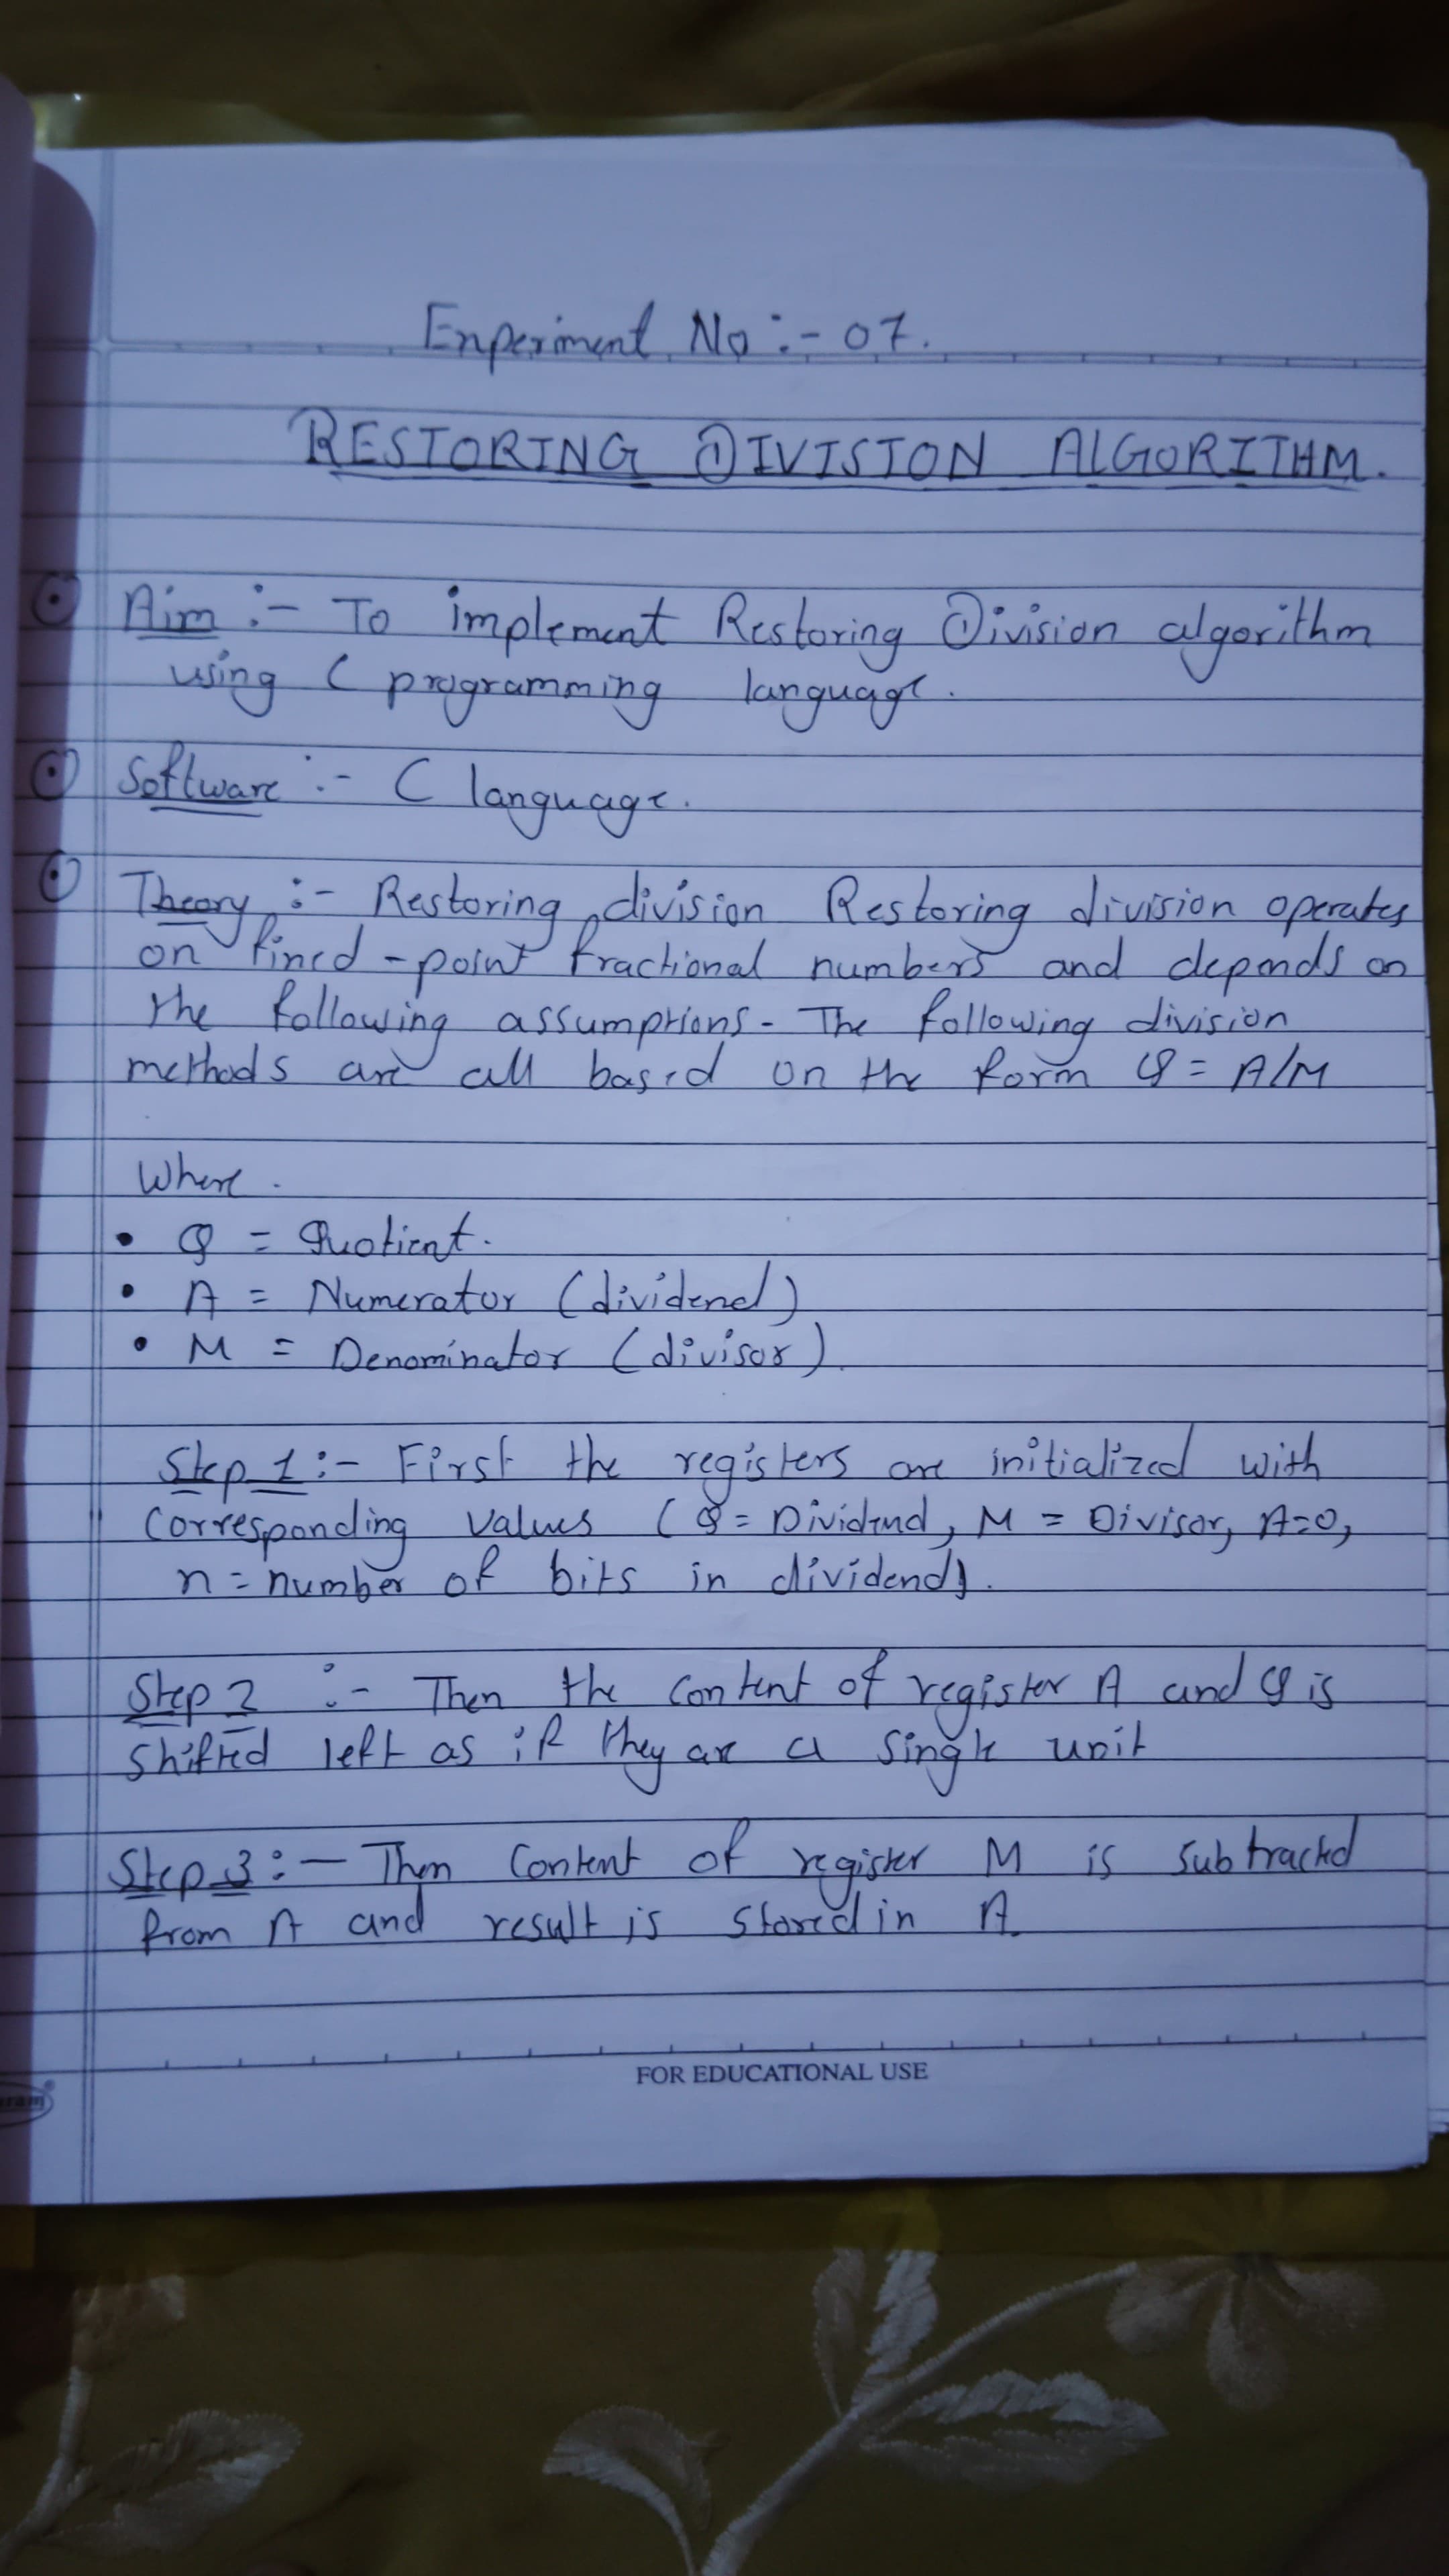 Experiment No :- 07.
RESTORING DIVISION ALGORITHM.
Aim :- To implement Restoring Division algorithm
using C programming language.
Software :- C language.
Theory :- Restoring division Restoring division operates
on fixed-point fractional numbers and depends on
the following assumptions- The following division
methods are all based on the form Q = A/M
Where.
• Q = Quotient.
• A = Numerator (dividend)
• M = Denominator (divisor).
Step 1 :- First the registers are initialized with
corresponding values (Q = Dividend, M = Divisor, A=0,
n = number of bits in dividend).
Step 2 :- Then the content of register A and Q is
shifted left as if they are a single unit
Step 3 :- Then content of register M is subtracted
from A and result is stored in A.
FOR EDUCATIONAL USE